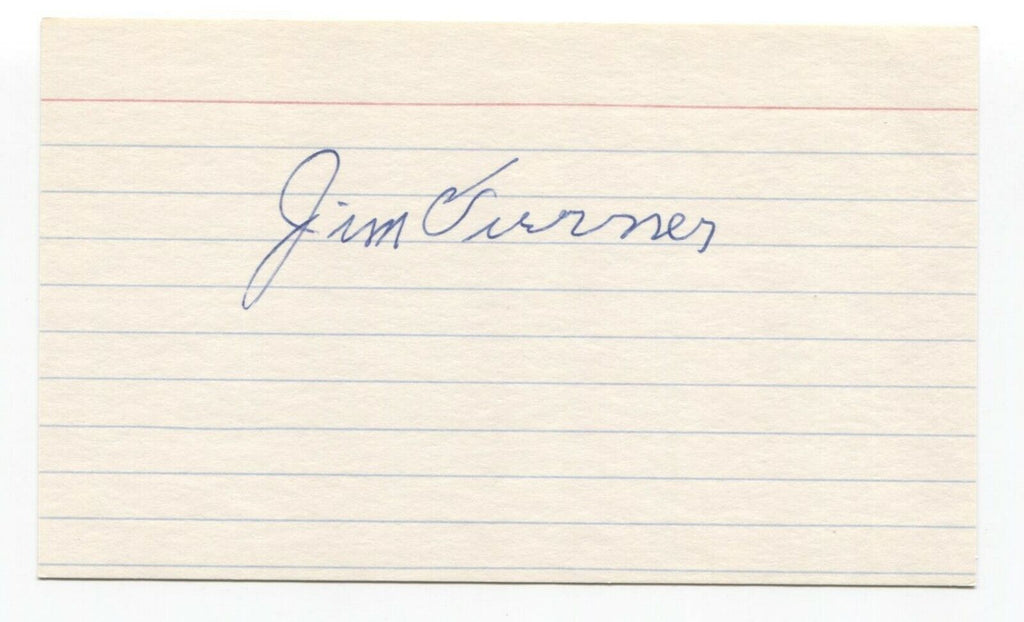 Jim Turner